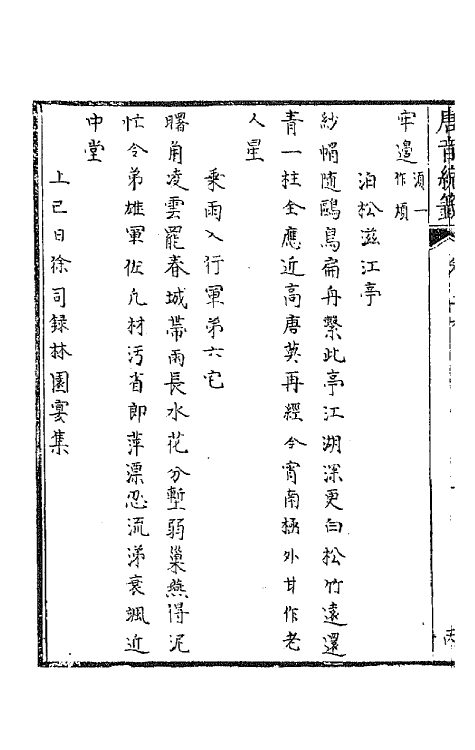 唐音統籤
牢邉
須一作頊
泊松滋江亭
紗㡌隨鷗鳥扁舟繫此亭江湖深更白松竹遠還
青一柱全應近高唐莫再經今宵南極外甘作老
人星
乘雨入行軍弟六宅
曙角凌雲罷春城帶雨長水花分塹弱巢燕得泥
忙令弟雄軍佐凡材汚省郎萍漂忍流涕衰颯近
中堂
上巳日徐司録林園宴集